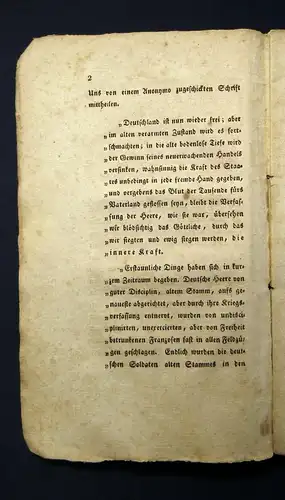 2
Uns von einem Anonymo zugeschickten Schrift
mittheilen.
„Deutschland ist nun wieder frei; aber
„im alten verarmten Zustand wird es fort-
„schmachten; in die alte bodenlose Tiefe wird
„der Gewinn seines neuerwachenden Handels
„versinken, wahnsinnig die Kraft des Staa-
„tes unbedingt in jede fremde Hand gegeben,
„und vergebens das Blut der Tausende fürs
„Vaterland geflossen seyn, bleibt die Verfas-
„sung der Heere, wie sie war, übersehen
„wie blödsichtig das Göttliche, durch das
„wir siegten und ewig siegen werden, die
„innere Kraft.
„Erstaunliche Dinge haben sich in kur-
„zem Zeitraum begeben. Deutsche Heere von
„guter Disciplin, altem Stamm, aufs ge-
„naueste abgerichtet, aber durch ihre Kriegs-
„verfassung entnervt, wurden von undisci-
„plinirten, unexercierten, aber von Freiheit
„betrunkenen Franzosen fast in allen Feldzü-
„gen geschlagen. Endlich wurden die deut-
„schen Soldaten alten Stammes in den